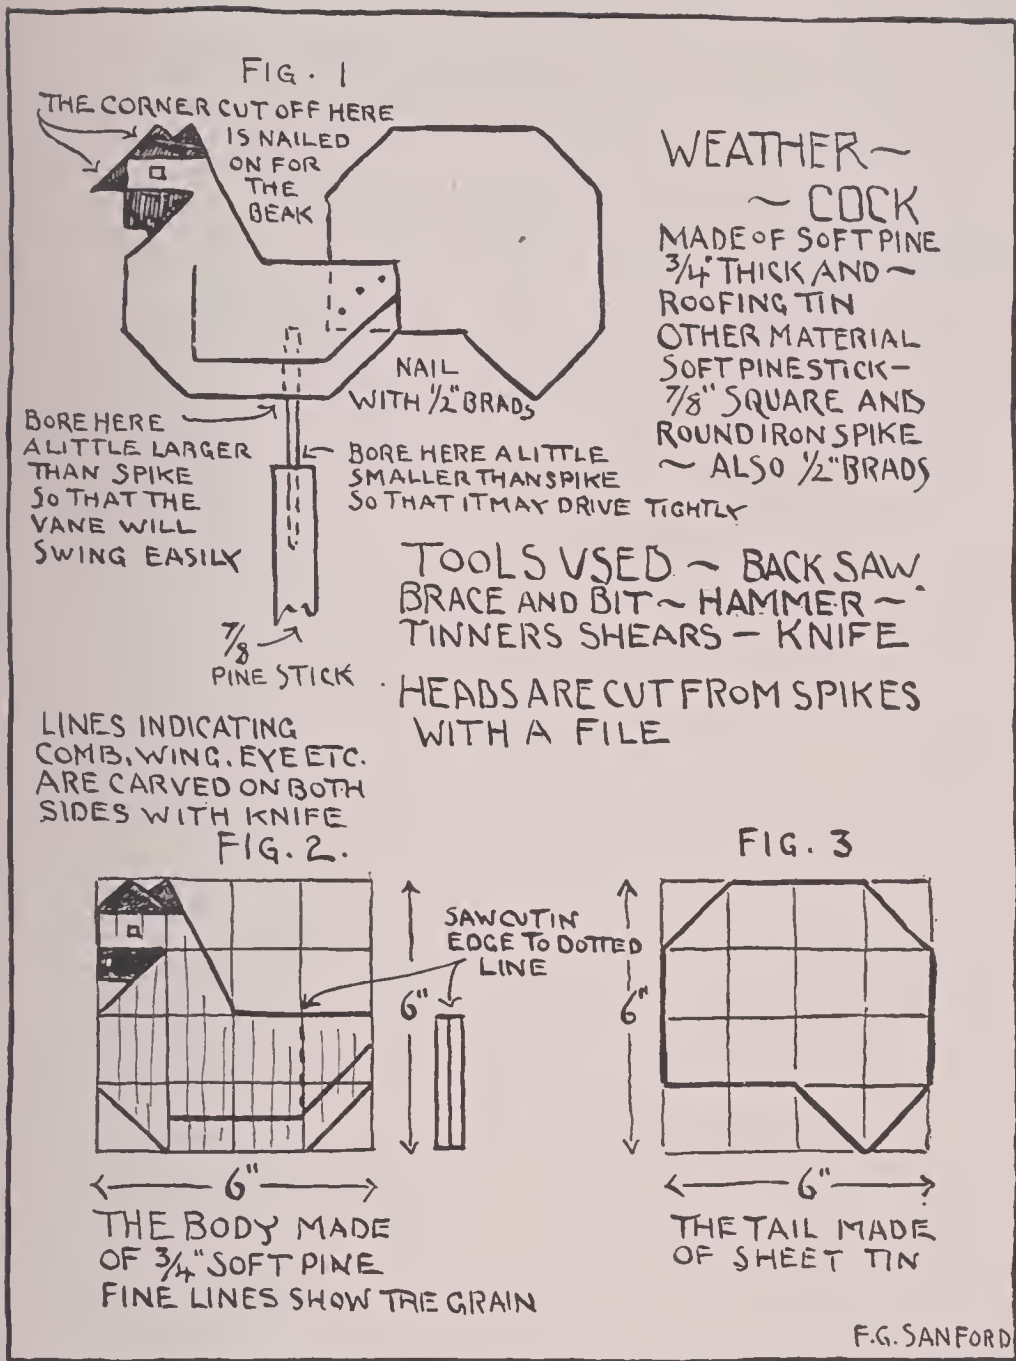 FIG. 1
THE CORNER CUT OFF HERE
IS NAILED
ON FOR
THE
BEAK
WEATHER~
~ COCK
MADE OF SOFT PINE
3/4" THICK AND ~
ROOFING TIN
OTHER MATERIAL
SOFT PINE STICK -
7/8" SQUARE AND
ROUND IRON SPIKE
~ ALSO 1/2" BRADS
NAIL
WITH 1/2" BRADS
BORE HERE
A LITTLE LARGER
THAN SPIKE
SO THAT THE
VANE WILL
SWING EASILY
BORE HERE A LITTLE
SMALLER THAN SPIKE
SO THAT IT MAY DRIVE TIGHTLY
7/8
PINE STICK
TOOLS USED ~ BACK SAW
BRACE AND BIT ~ HAMMER ~
TINNERS SHEARS - KNIFE
HEADS ARE CUT FROM SPIKES
WITH A FILE
LINES INDICATING
COMB, WING, EYE ETC.
ARE CARVED ON BOTH
SIDES WITH KNIFE
FIG. 2.
SAW CUT IN
EDGE TO DOTTED
LINE
6"
6"
THE BODY MADE
OF 3/4" SOFT PINE
FINE LINES SHOW THE GRAIN
FIG. 3
6"
6"
THE TAIL MADE
OF SHEET TIN
F.G. SANFORD